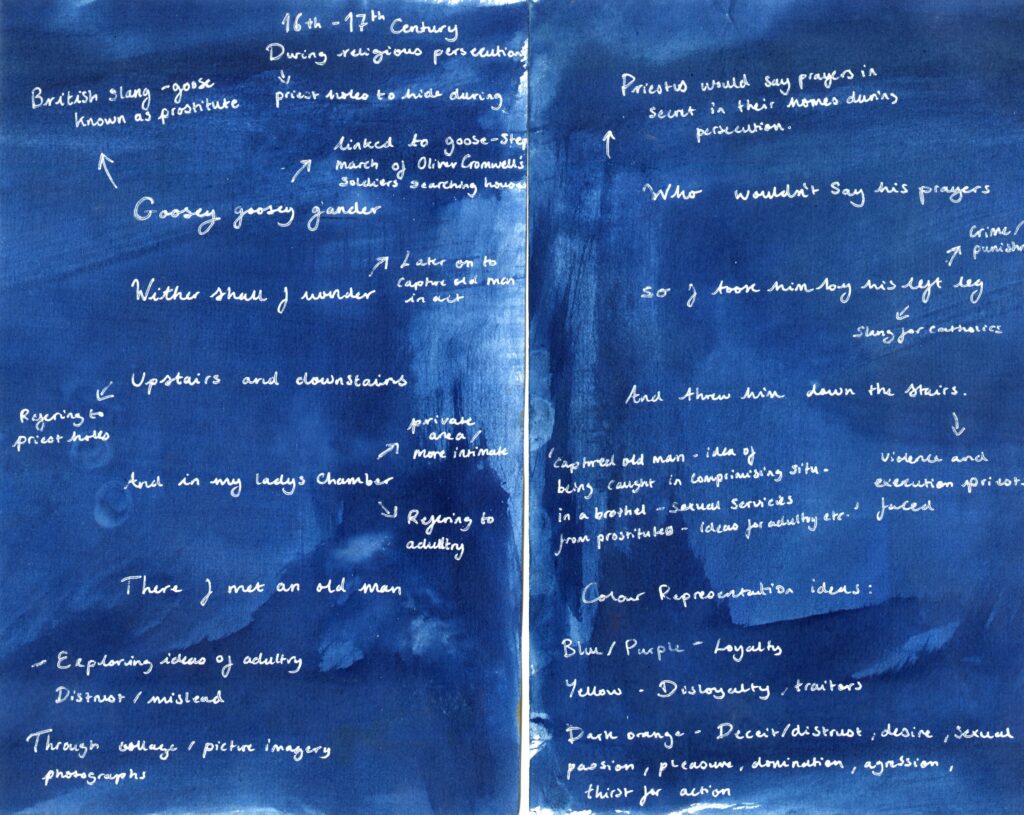 16th - 17th Century
During religious persecution
priest holes to hide during
British slang - goose
known as prostitute
linked to goose-step
march of Oliver Cromwell's
soldiers searching houses
Goosey goosey gander
Later on to
capture old man
in act
Wither shall I wonder
Upstairs and downstairs
Refering to
priest holes
private
area /
more intimate
And in my ladys chamber
Refering to
adultry
There I met an old man
- Exploring ideas of adultry
Distrust / mislead
Through collage / picture imagery
photographs
Priests would say prayers in
secret in their homes during
persecution.
Who wouldn't say his prayers
Crime /
punishm
so I took him by his left leg
slang for catholics
And threw him down the stairs.
Violence and
execution priest
faced
'captured old man - idea of
being caught in comprimising situ.
in a brothel - sexual services
from prostitutes - ideas for adultry etc.'
Colour Representation ideas:
Blue / Purple - Loyalty
Yellow - Disloyalty, traitors
Dark orange - Deceit/distrust, desire, sexual
passion, pleasure, domination, agression,
thirst for action